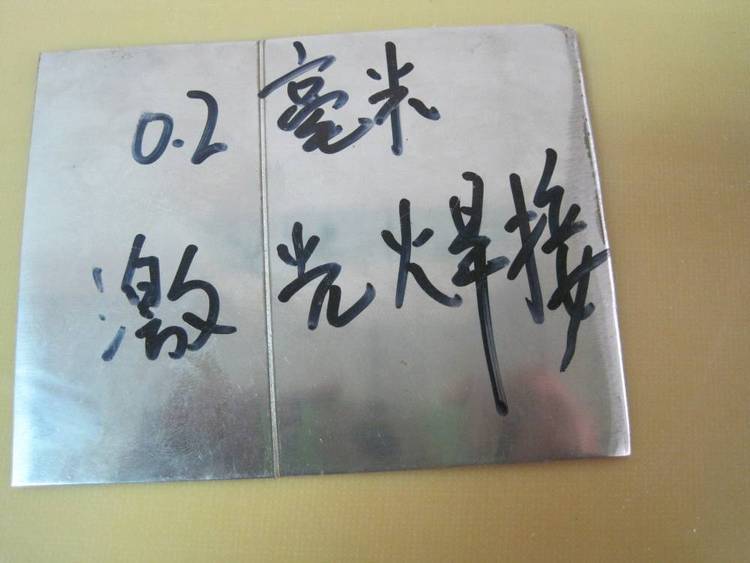 0.2毫米
激光焊接